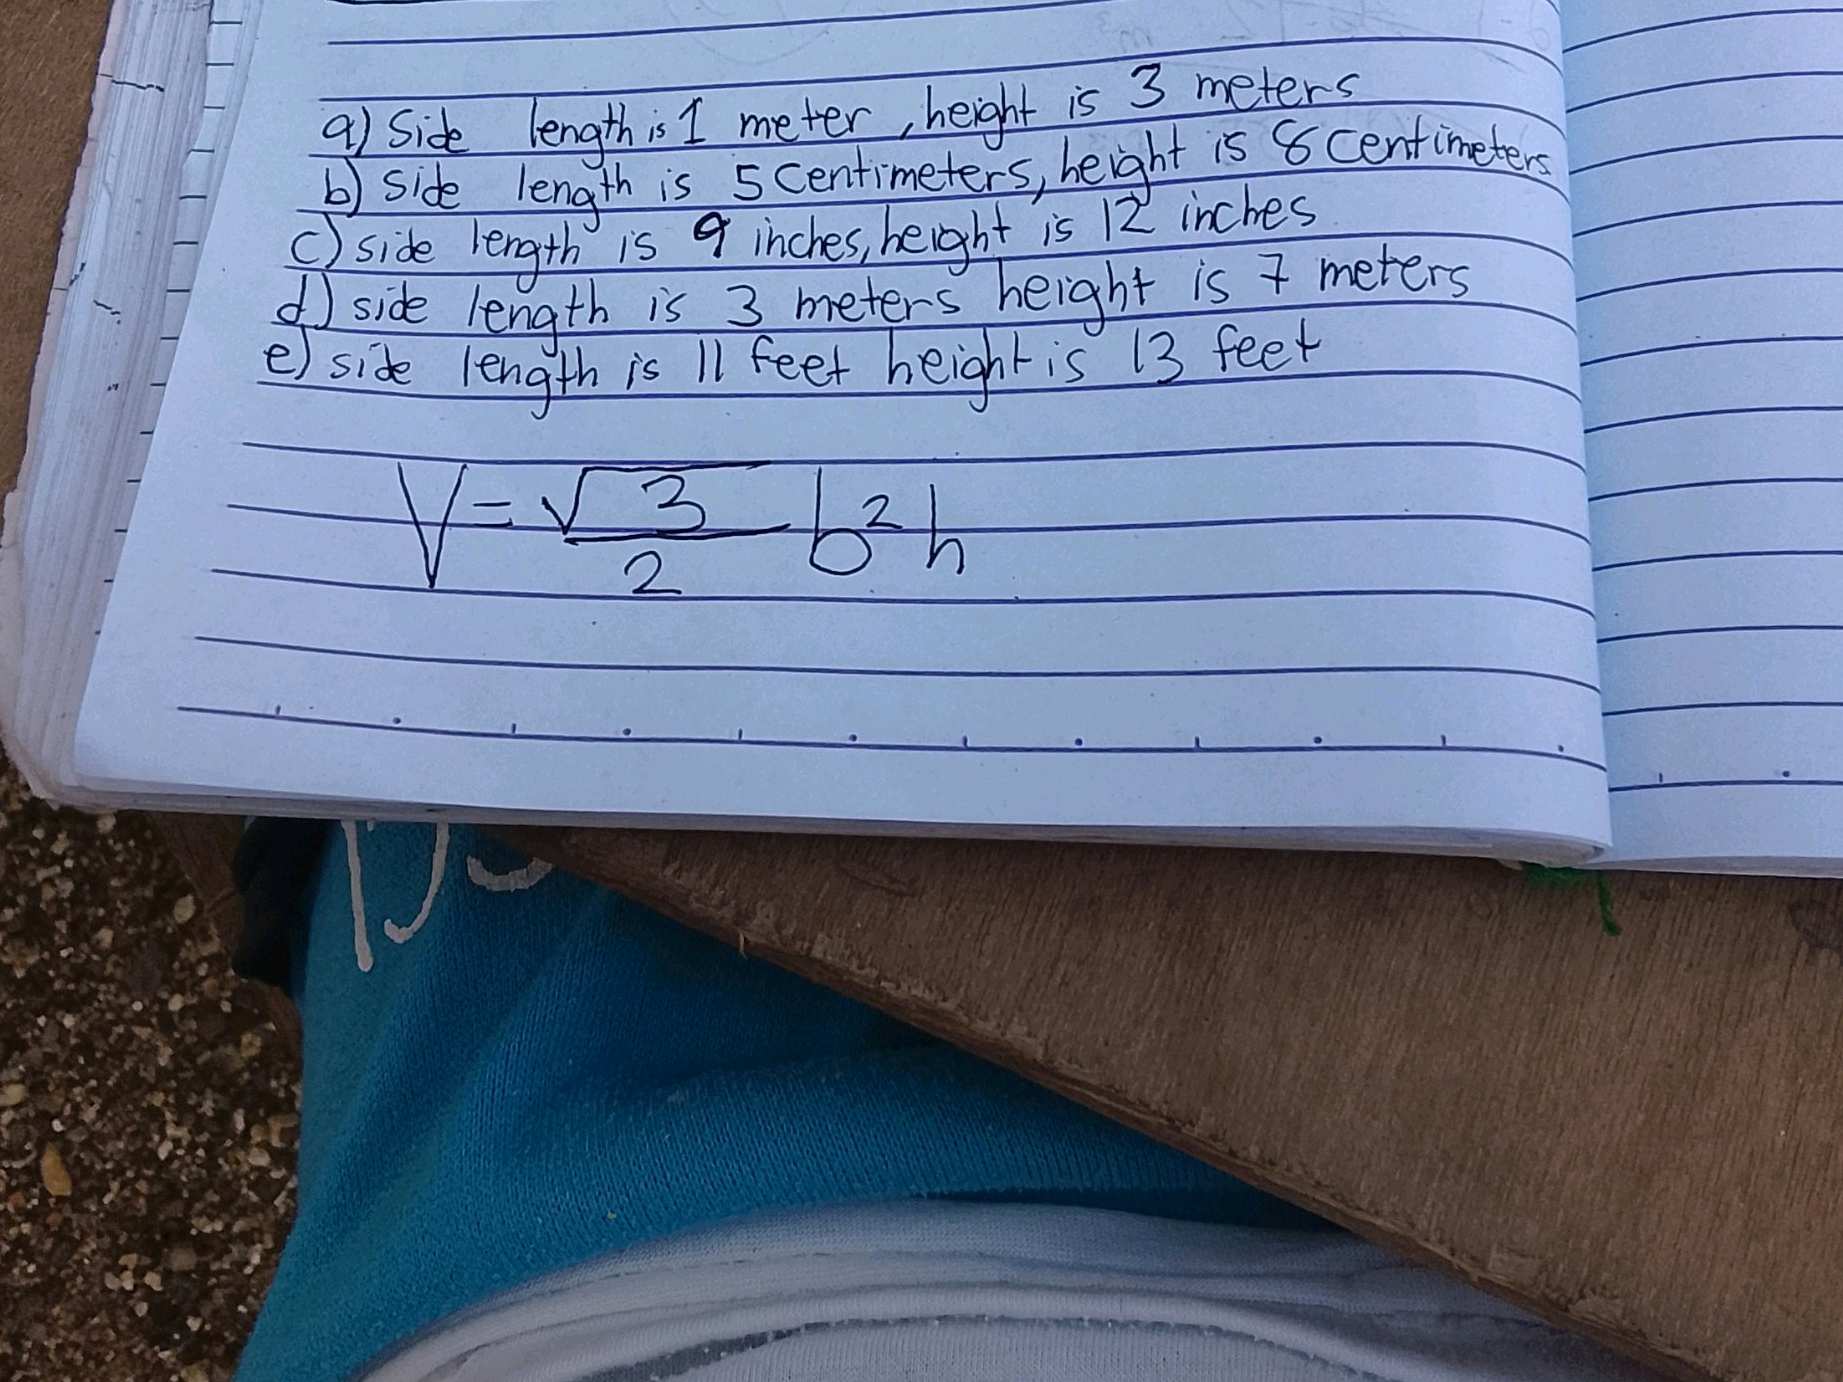 a) Side length is 1 meter, height is 3 meters
b) side length is 5 centimeters, height is 8 centimeters
c) side length is 9 inches, height is 12 inches
d) side length is 3 meters height is 7 meters
e) side length is 11 feet height is 13 feet
V = √3/2 b²h